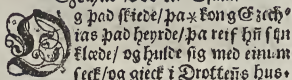 Og þad skiede/ þa * Kong Ezech⸗
ias þad heyrde/ þa reif hn̄ sijn
klæde/ og hulde sig med einum
seck/ og gieck i Drottens hus.